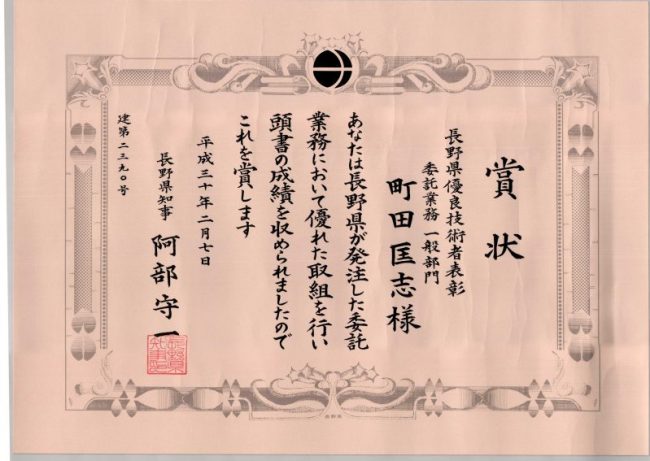 賞状
長野県優良技術者表彰
委託業務 一般部門
町田匡志様
あなたは長野県が発注した委託
業務において優れた取組を行い
頭書の成績を収められましたので
これを賞します
平成三十年二月七日
長野県知事 阿部守一
建第二三九〇号
長野県